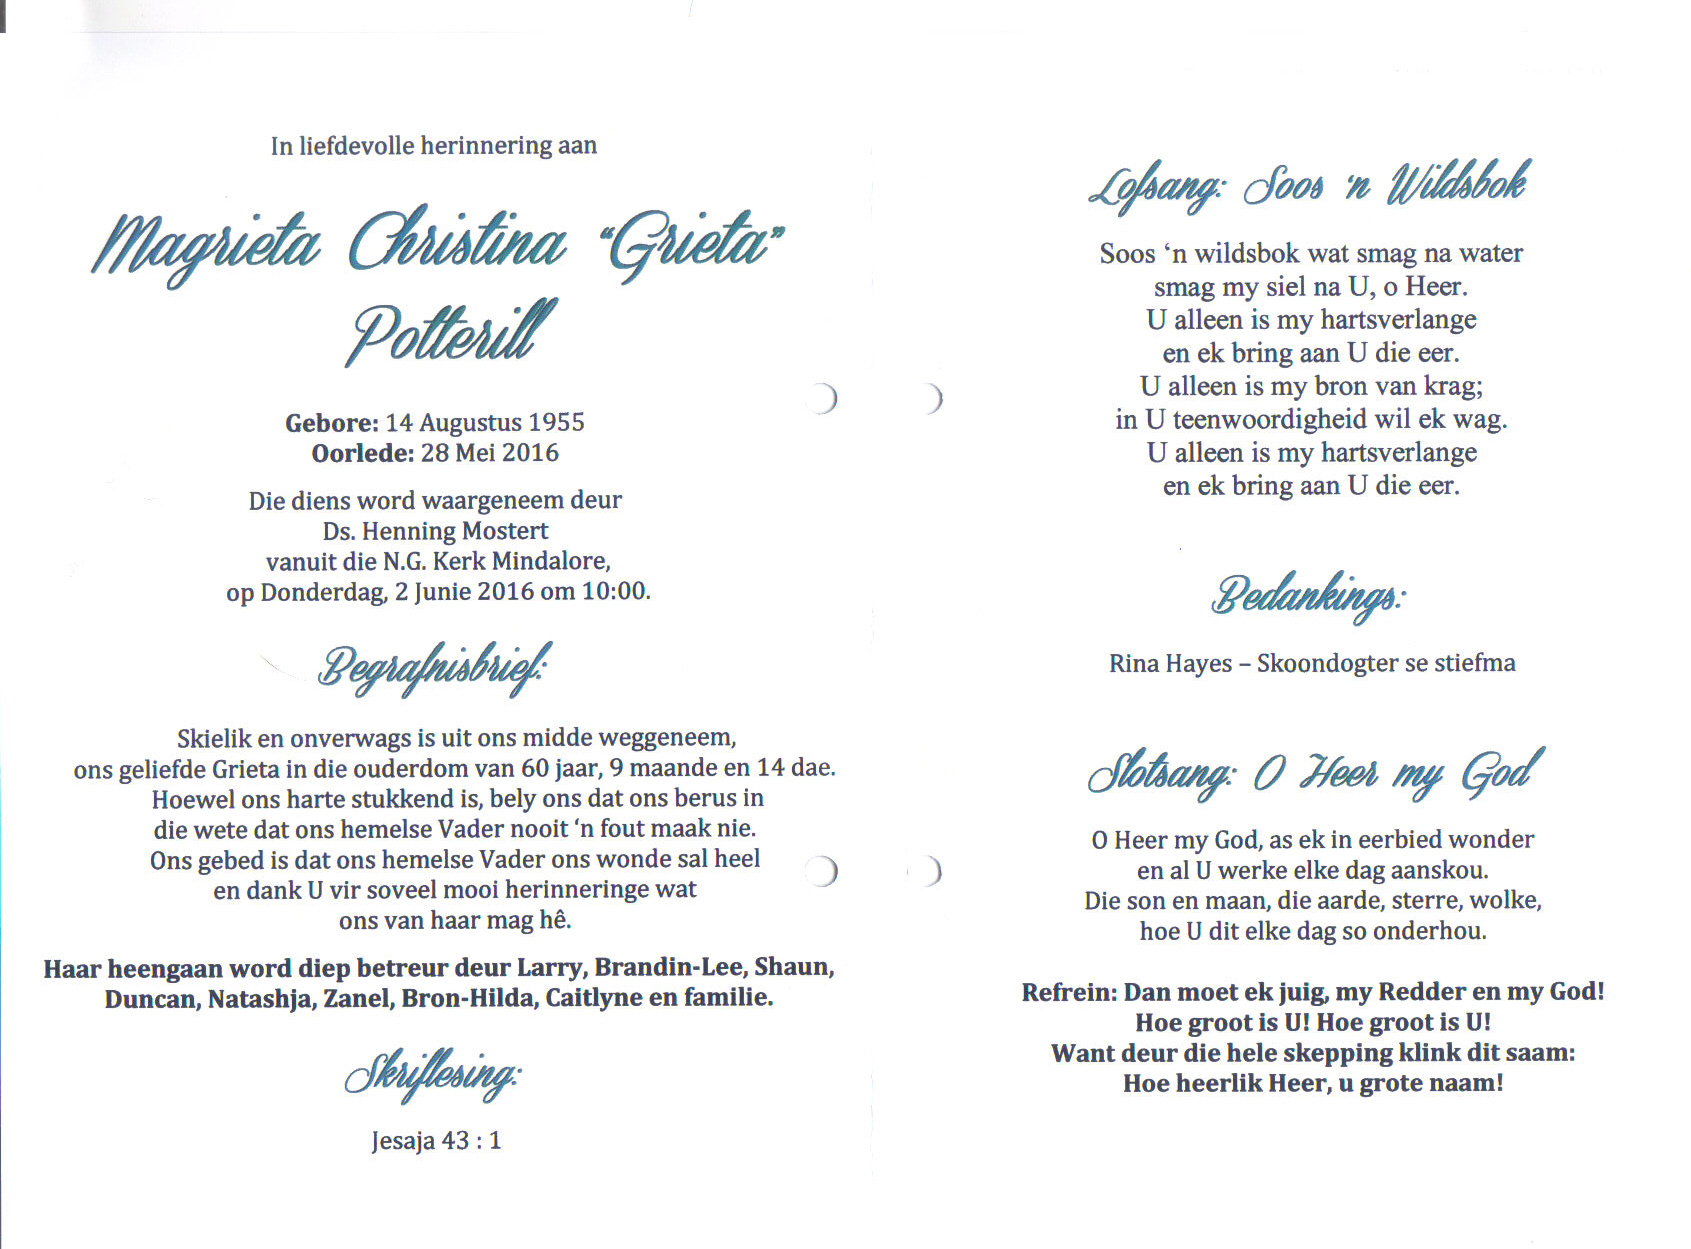 In liefdevolle herinnering aan
Magrieta Christina “Grieta”
Potterill
Gebore: 14 Augustus 1955
Oorlede: 28 Mei 2016
Die diens word waargeneem deur
Ds. Henning Mostert
vanuit die N.G. Kerk Mindalore,
op Donderdag, 2 Junie 2016 om 10:00.
Begrafnisbrief:
Skielik en onverwags is uit ons midde weggeneem,
ons geliefde Grieta in die ouderdom van 60 jaar, 9 maande en 14 dae.
Hoewel ons harte stukkend is, bely ons dat ons berus in
die wete dat ons hemelse Vader nooit ‘n fout maak nie.
Ons gebed is dat ons hemelse Vader ons wonde sal heel
en dank U vir soveel mooi herinneringe wat
ons van haar mag hê.
Haar heengaan word diep betreur deur Larry, Brandin-Lee, Shaun,
Duncan, Natashja, Zanel, Bron-Hilda, Caitlyne en familie.
Skriflesing:
Jesaja 43 : 1
Lofsang: Soos ‘n Wildsbok
Soos ‘n wildsbok wat smag na water
smag my siel na U, o Heer.
U alleen is my hartsverlange
en ek bring aan U die eer.
U alleen is my bron van krag;
in U teenwoordigheid wil ek wag.
U alleen is my hartsverlange
en ek bring aan U die eer.
Bedankings:
Rina Hayes – Skoondogter se stiefma
Slotsang: O Heer my God
O Heer my God, as ek in eerbied wonder
en al U werke elke dag aanskou.
Die son en maan, die aarde, sterre, wolke,
hoe U dit elke dag so onderhou.
Refrein: Dan moet ek juig, my Redder en my God!
Hoe groot is U! Hoe groot is U!
Want deur die hele skepping klink dit saam:
Hoe heerlik Heer, u grote naam!